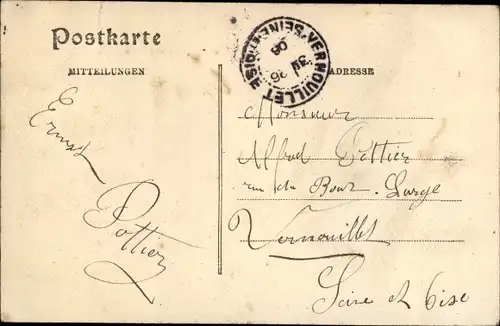 Postkarte
MITTEILUNGEN
ADRESSE
VERNOUILLET SEINE-ET-OISE
Ernest
Pottier
Monsieur
Alfred Pottier
rue du Bout-Large
Vernouillet
Seine et Oise